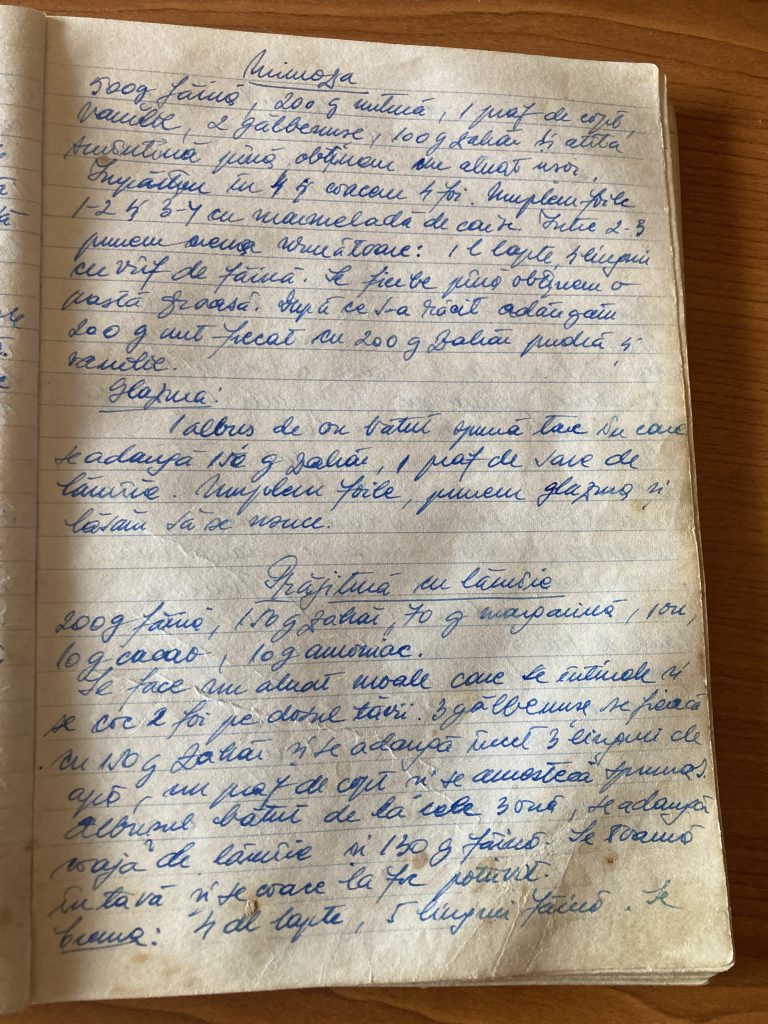 Mimoza
500g făină, 200 g untură, 1 praf de copt,
vanilie, 2 gălbenușe, 100g zahăr și atîta
smîntînă pînă obținem un aluat ușor.
Împărțim în 4 și coacem 4 foi. Umplem foile
1-2 și 3-4 cu marmeladă de caise. Între 2-3
punem crema următoare: 1 l lapte, 4 linguri
cu vîrf de făină. Se fierbe pînă obținem o
pastă groasă. După ce s-a răcit adăugăm
200 g unt frecat cu 200 g zahăr pudră și
vanilie.
Glazura:
1 albuș de ou bătut spumă tare în care
se adaugă 150 g zahăr, 1 praf de sare de
lămîie. Umplem foile, punem glazura și
lăsăm să se usuce.
Prăjitură cu lămîie
200g făină, 150g zahăr, 70 g margarină, 1 ou,
10g cacao, 10g amoniac.
Se face un aluat moale care se întinde și
se coc 2 foi pe dosul tăvii. 3 gălbenușe se freacă
cu 150 g zahăr și se adaugă încet 3 linguri de
apă, un praf de copt și se amestecă spuma
albușul bătut de la cele 3 ouă, se adaugă
coaja de lămîie și 130 g făină. Se toarnă
în tavă și se coace la foc potrivit.
Crema: 4 dl lapte, 5 linguri făină. Se